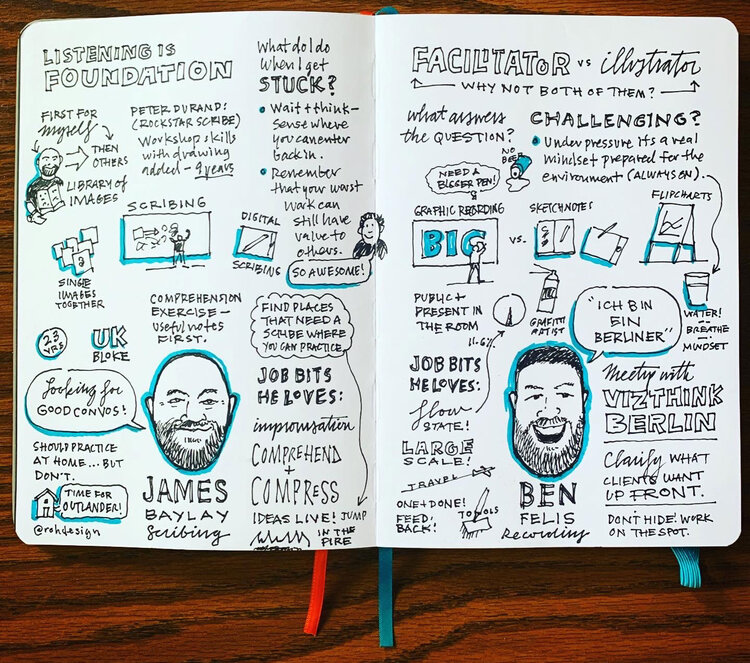 LISTENING IS
FOUNDATION
FIRST FOR
myself
THEN
OTHERS
LIBRARY OF
IMAGES
PETER DURAND:
(ROCKSTAR SCRIBE)
Workshop skills
with drawing
added – 9 years
What do I do
when I get
STUCK?
Wait + think –
sense where
you can enter
back in.
Remember
that your worst
work can
still have
value to
others.
SO AWESOME!
SCRIBING
DIGITAL
SCRIBING
SINGLE
IMAGES
TOGETHER
COMPREHENSION
EXERCISE –
useful notes
FIRST.
FIND PLACES
THAT NEED A
SCRIBE WHERE
YOU CAN PRACTICE.
23
YRS
UK
BLOKE
Looking for
GOOD CONVOS!
SHOULD PRACTICE
AT HOME... BUT
DON'T.
TIME FOR
OUTLANDER!
@rohdesign
JAMES
BAYLAY
Scribing
JOB BITS
HE LOVES:
improvisation
COMPREHEND
+
COMPRESS
IDEAS LIVE!
JUMP
IN THE
FIRE
FACILITATOR vs illustrator
WHY NOT BOTH OF THEM?
what answers
the QUESTION?
CHALLENGING?
Under pressure its a real
mindset prepared for the
environment (ALWAYS ON).
NEED A
BIGGER PEN!
NO
GRAPHIC RECORDING
BIG
VS.
SKETCHNOTES
FLIPCHARTS
PUBLIC +
PRESENT IN
THE ROOM
GRAFITTI
ARTIST
"ICH BIN
EIN
BERLINER"
WATER!
BREATHE
MINDSET
JOB BITS
HE LOVES:
flow
STATE!
LARGE
SCALE!
TRAVEL
ONE + DONE!
FEED-
BACK!
TOOLS
BEN
FELIS
Recording
Meetup with
VIZTHINK
BERLIN
Clarify WHAT
CLIENTS WANT
UP FRONT.
DON'T HIDE! WORK
ON THE SPOT.